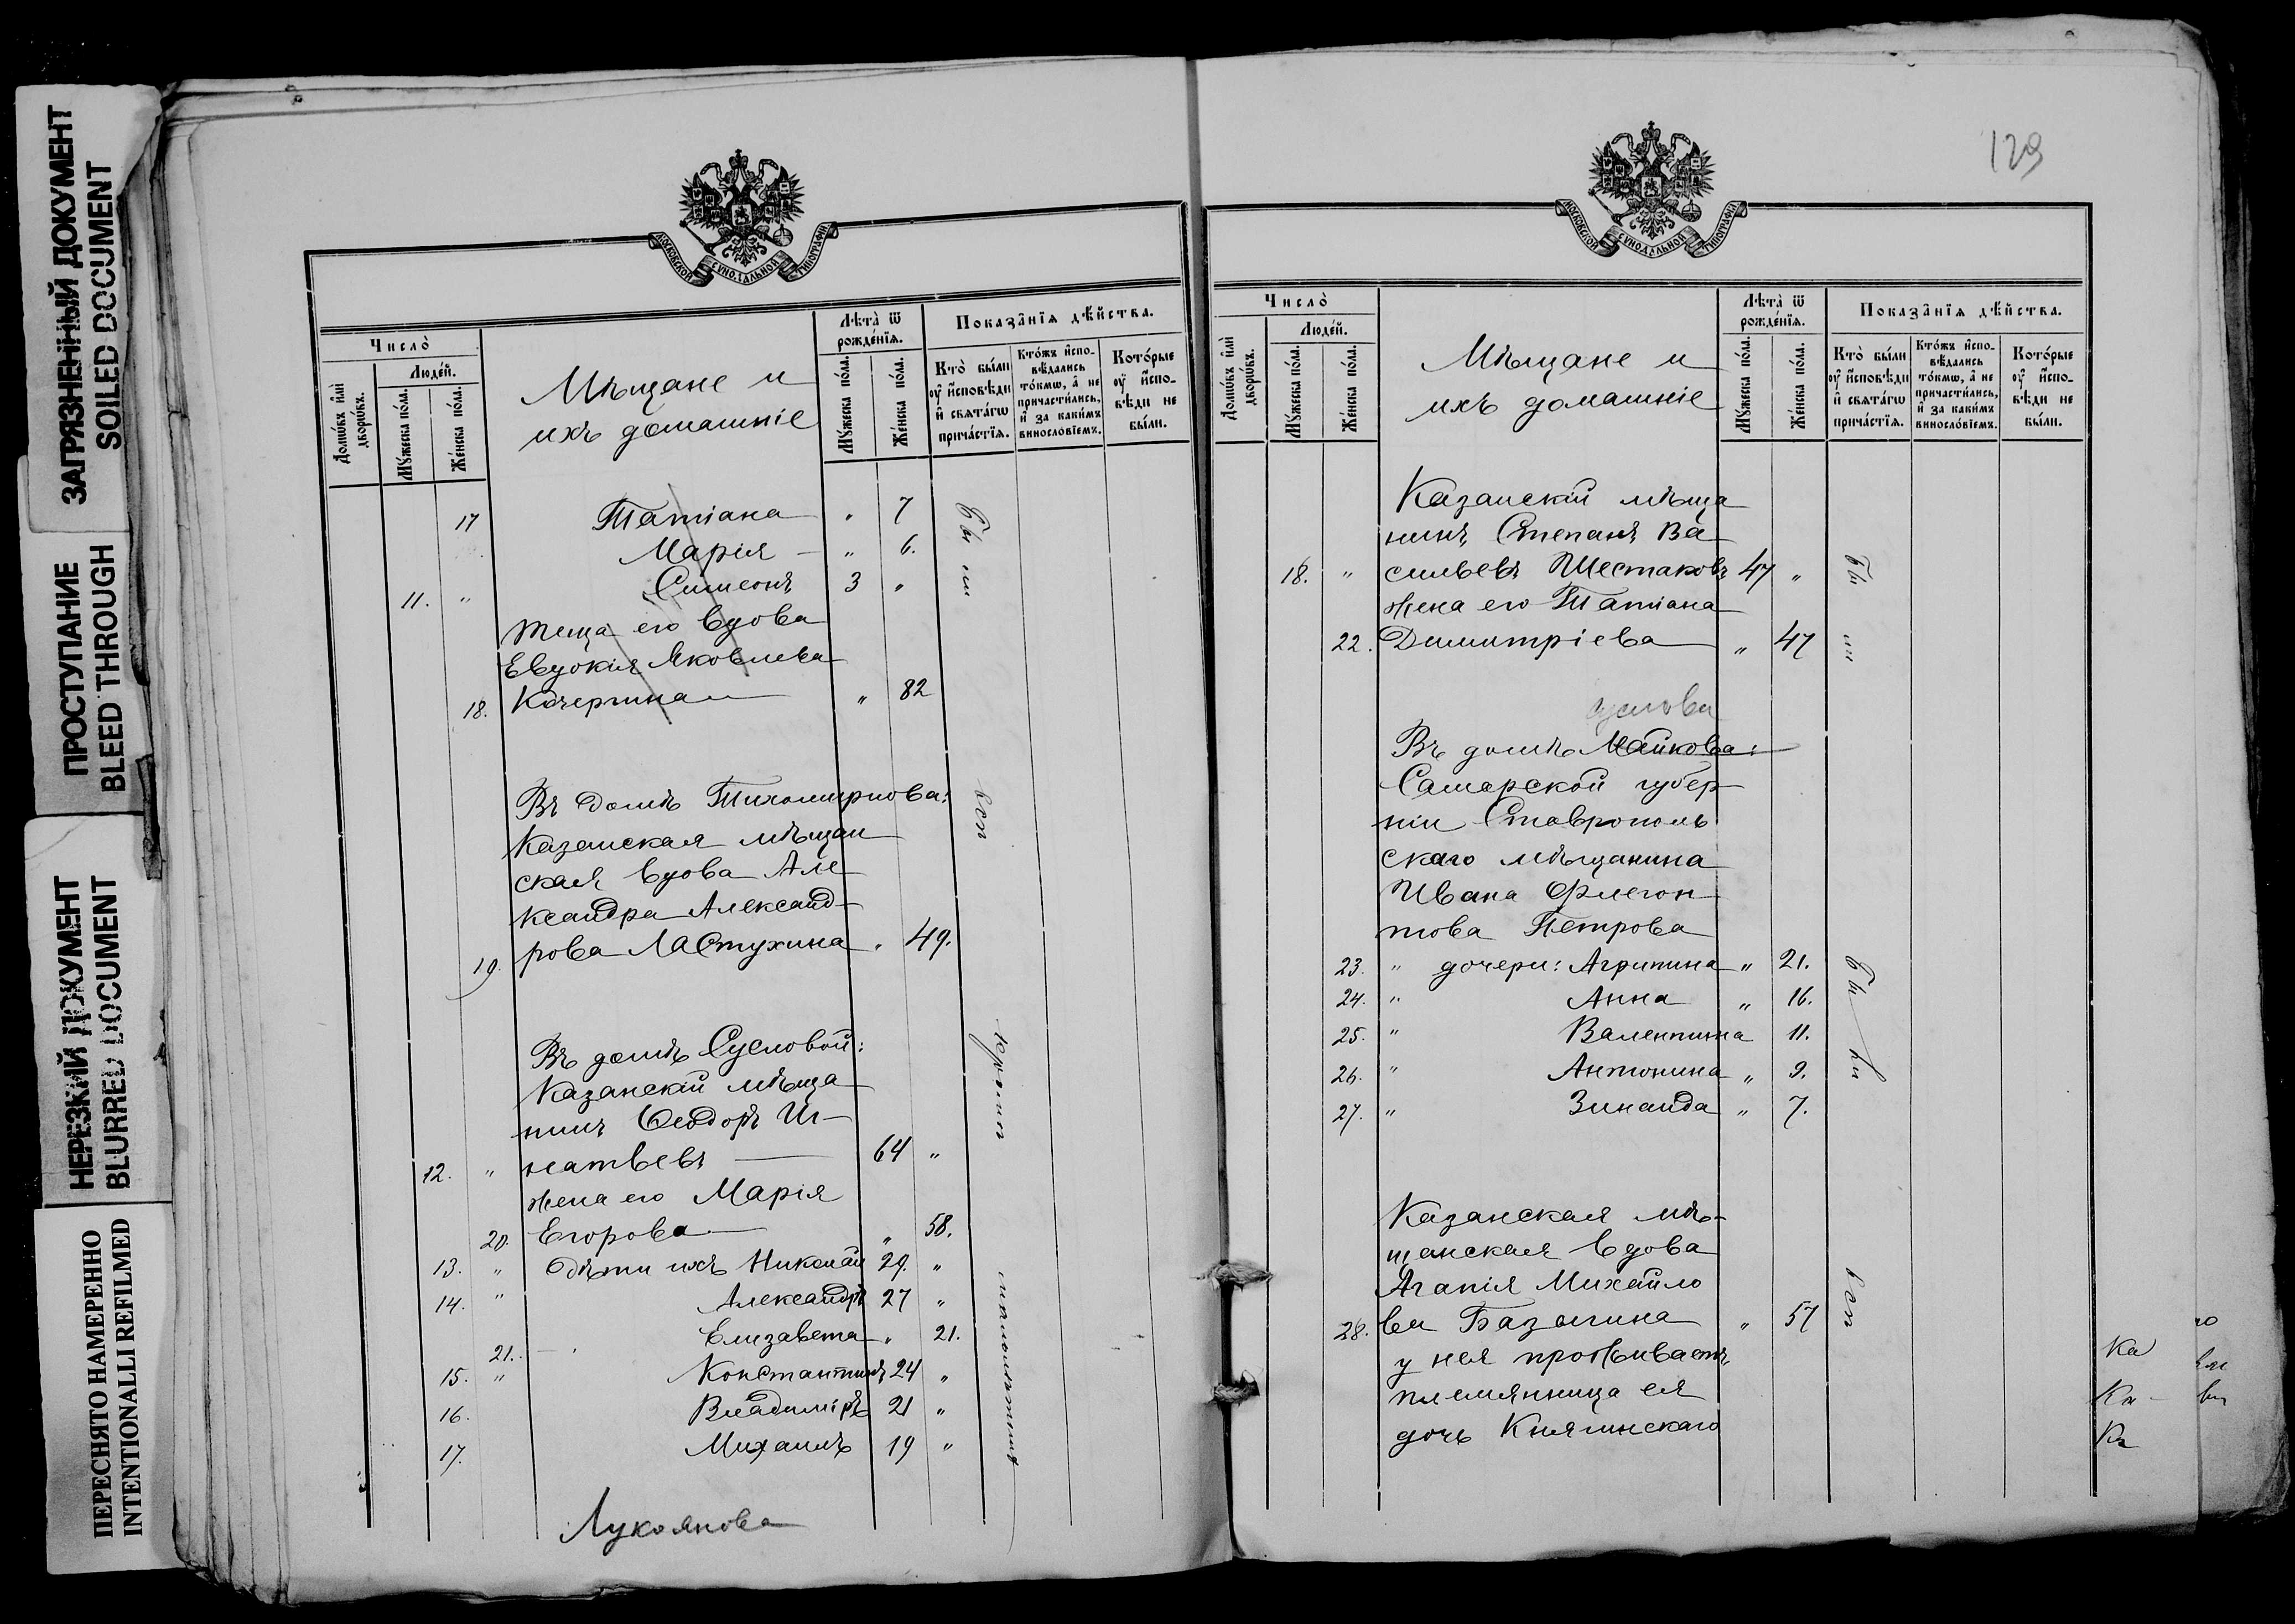 ЗАГРЯЗНЕННЫЙ ДОКУМЕНТ
SOILED DOCUMENT
ПРОСТУПАНИЕ
BLEED THROUGH
НЕРЕЗКИЙ ДОКУМЕНТ
BLURRED DOCUMENT
ПЕРЕСНЯТО НАМЕРЕННО
INTENTIONALLI REFILMED
МОСКОВСКОЙ СѴНОДАЛЬНОЙ ТИПОГРАФІИ
Число̀
Домѡ́въ и҆лѝ дворѡ́въ.
Люде́й.
Мꙋ́жеска по́ла.
Же́нска по́ла.
Мѣщане и
ихъ домашніе
Лѣта̀ ѿ рожде́нїѧ.
Мꙋ́жеска по́ла.
Же́нска по́ла.
Показа̑нїѧ дѣ́йства.
Кто̀ бы́ли оу҆ и҆сповѣ́ди и҆ свѧта́гѡ прича́стїѧ.
Кто́жъ и҆спо-вѣ́дались то́кмѡ, а҆ не причасти́лись, и҆ за каки́мъ виносло́вїемъ.
Кото́рые оу҆ и҆спо-вѣ́ди не бы́ли.
17 Татіана " 7
Марія — " 6.
11. " Симеонъ 3 "
теща его вдова
Евдокія Яковлева
18. Кочергина " 82
Въ домѣ Тихомирнова:
Казанская мѣщан
ская вдова Але
ксандра Александ-
19. рова Ластухина " 49.
Въ домѣ Сусловой:
Казанскій мѣща
нинъ Ѳеодоръ Иг-
12. " натьевъ — 64 "
жена его Марія
20. Егорова " 58.
13. " Дѣти ихъ Николай 29. "
14. " Александръ 27 "
21. Елизавета " 21.
15. " Константинъ 24 "
16. Владиміръ 21 "
17. Михаилъ 19 "
Лукоянова
129
МОСКОВСКОЙ СѴНОДАЛЬНОЙ ТИПОГРАФІИ
Число̀
Домѡ́въ и҆лѝ дворѡ́въ.
Люде́й.
Мꙋ́жеска по́ла.
Же́нска по́ла.
Мѣщане и
ихъ домашніе
Лѣта̀ ѿ рожде́нїѧ.
Мꙋ́жеска по́ла.
Же́нска по́ла.
Показа̑нїѧ дѣ́йства.
Кто̀ бы́ли оу҆ и҆сповѣ́ди и҆ свѧта́гѡ прича́стїѧ.
Кто́жъ и҆спо-вѣ́дались то́кмѡ, а҆ не причасти́лись, и҆ за каки́мъ виносло́вїемъ.
Кото́рые оу҆ и҆спо-вѣ́ди не бы́ли.
Казанскій мѣща
нинъ Степанъ Ва
18. " сильевъ Шестаковъ 47 "
жена его Татіана
22. Димитріева " 47
Суслова
Въ домѣ Майкова:
Самарской губер
ніи Ставрополь
скаго мѣщанина
Ивана Флегон
това Петрова
23. " дочери: Агрипина " 21.
24. " Анна " 16.
25. " Валентина 11.
26. " Антонина " 9.
27. " Зинаида " 7.
Казанская мѣ-
щанская вдова
Агапія Михайло
28. ва Базыгина " 57
у нея проживаетъ
племянница ея
дочь Княгинскаго
Ка
Ка
Ка